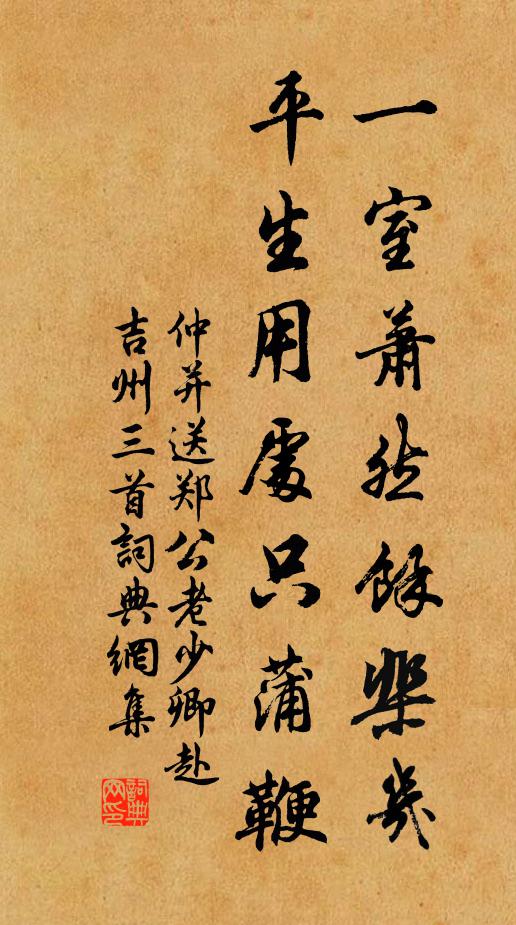 一室萧然馀棐几
平生用处只蒲鞭
仲并送郑公老少卿赴
吉州三首詞典網集
詞典網印